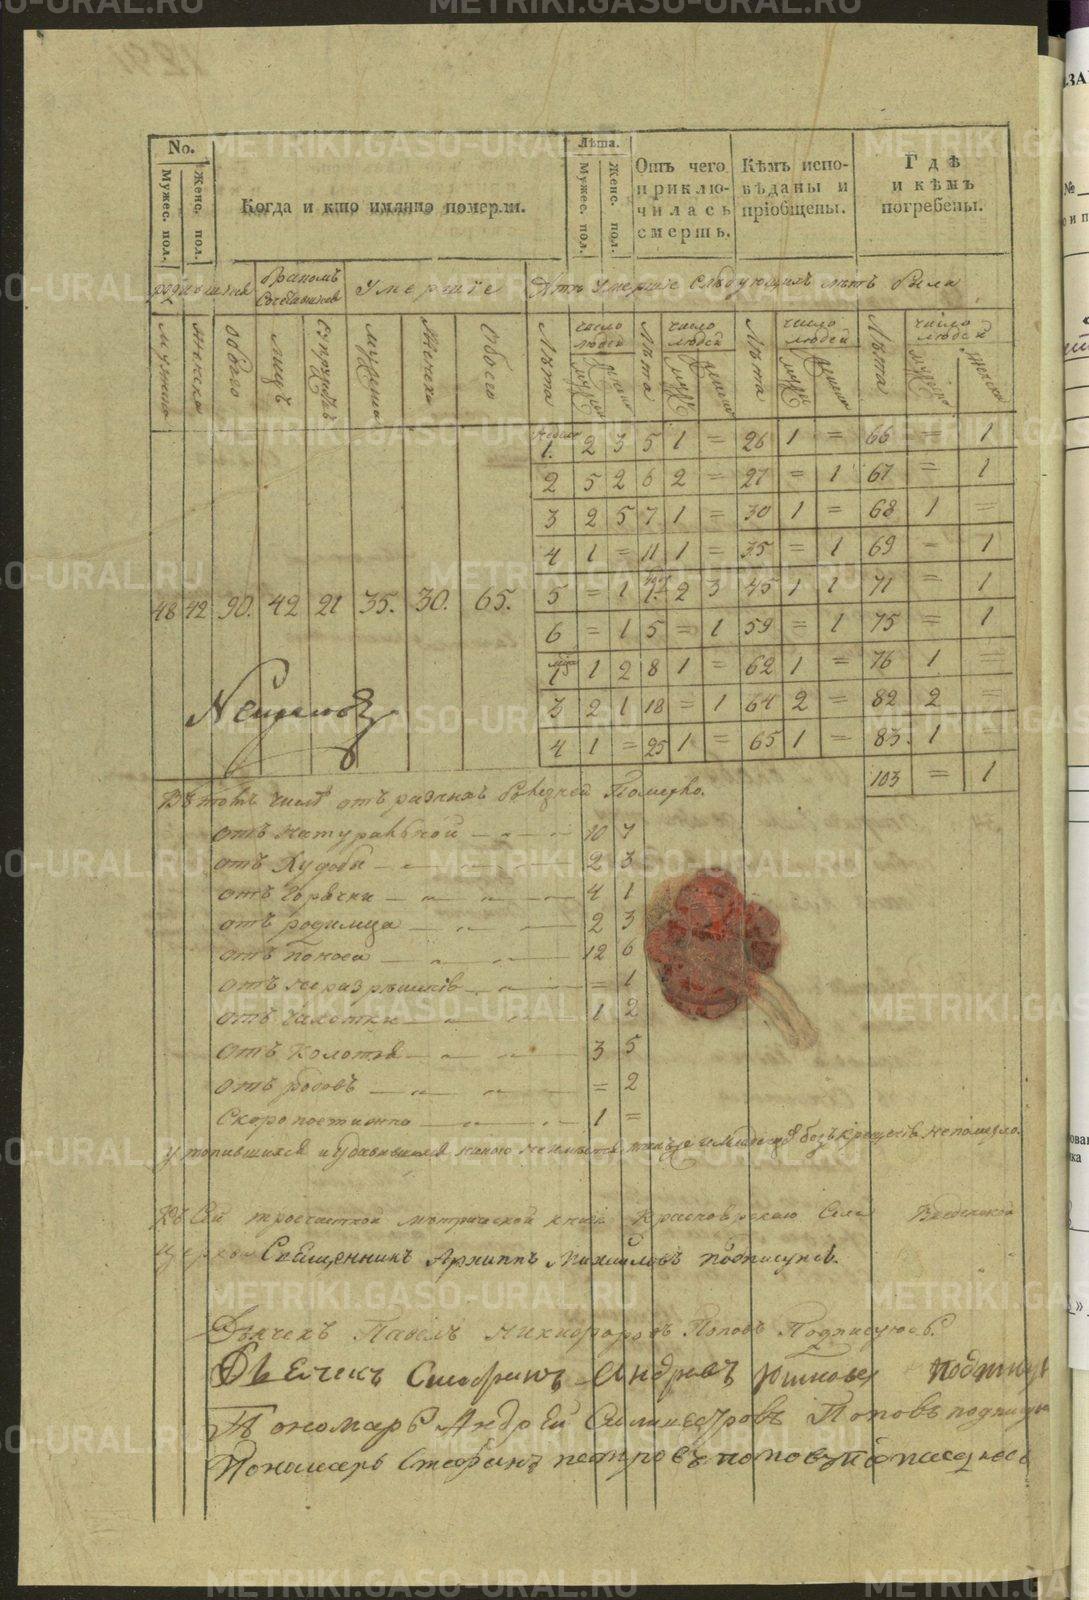 No.
Мужес. пол.
Женс. пол.
Когда и кто имянно померли.
Лѣта.
Мужес. пол.
Женс. пол.
Отъ чего приклю-
чилась смерть.
Кѣмъ испо-
вѣданы и
пріобщены.
Гдѣ
и кѣмъ
погребены.
родившихся
бракомъ
Сочетавшихся
Умершіе
Умершіе Слѣдующихъ лѣтъ были
мужеска
женска
Обоего
лицъ
Супружествъ
Мужеска
Женска
Обоего
Лѣта
число людей
Лѣта
число людей
Лѣта
число людей
Лѣта
число людей
1. 2 3 5 1 = 26 1 = 66 = 1
2 5 2 6 2 = 27 = 1 67 = 1
3 2 5 7 1 = 30 1 = 68 1 =
4 1 = 11 1 = 35 = 1 69 = 1
48 42 90. 42 21 35. 30. 65.
5 = 1 1. 2 3 45 1 1 71 = 1
6 = 1 5 = 1 59 = 1 75 = 1
1 2 8 1 = 62 1 = 76 1 =
3 2 1 18 = 1 64 2 = 82 2 =
4 1 = 25 1 = 65 1 = 83. 1 =
103 = 1
Въ томъ числѣ отъ разныхъ болѣзней Померло.
отъ Натуральной 10 7
отъ Худобы 2 3
отъ Горячки 4 1
отъ родимца 2 3
отъ Поноса 12 6
отъ = 1
отъ Чахотки 1 2
отъ Колотья 3 5
отъ родовъ = 2
Скоропостижно 1 =
утопившихся и удавившихся безъ крещенія не померло.
Къ Сей троечастной метрической книгѣ Красноярскаго Села Введенской
Церкви Священникъ Архиппъ Михайловъ подписуюсь.
Дьячекъ Павелъ Никифоровъ Поповъ Подписуюсь.
Дьячекъ Стефанъ Андреевъ
Пономарь Андрей Силивестровъ Поповъ подписуюсь
Пономарь Стефанъ петровъ поповъ подписуюсь
METRIKI.GASO-URAL.RU